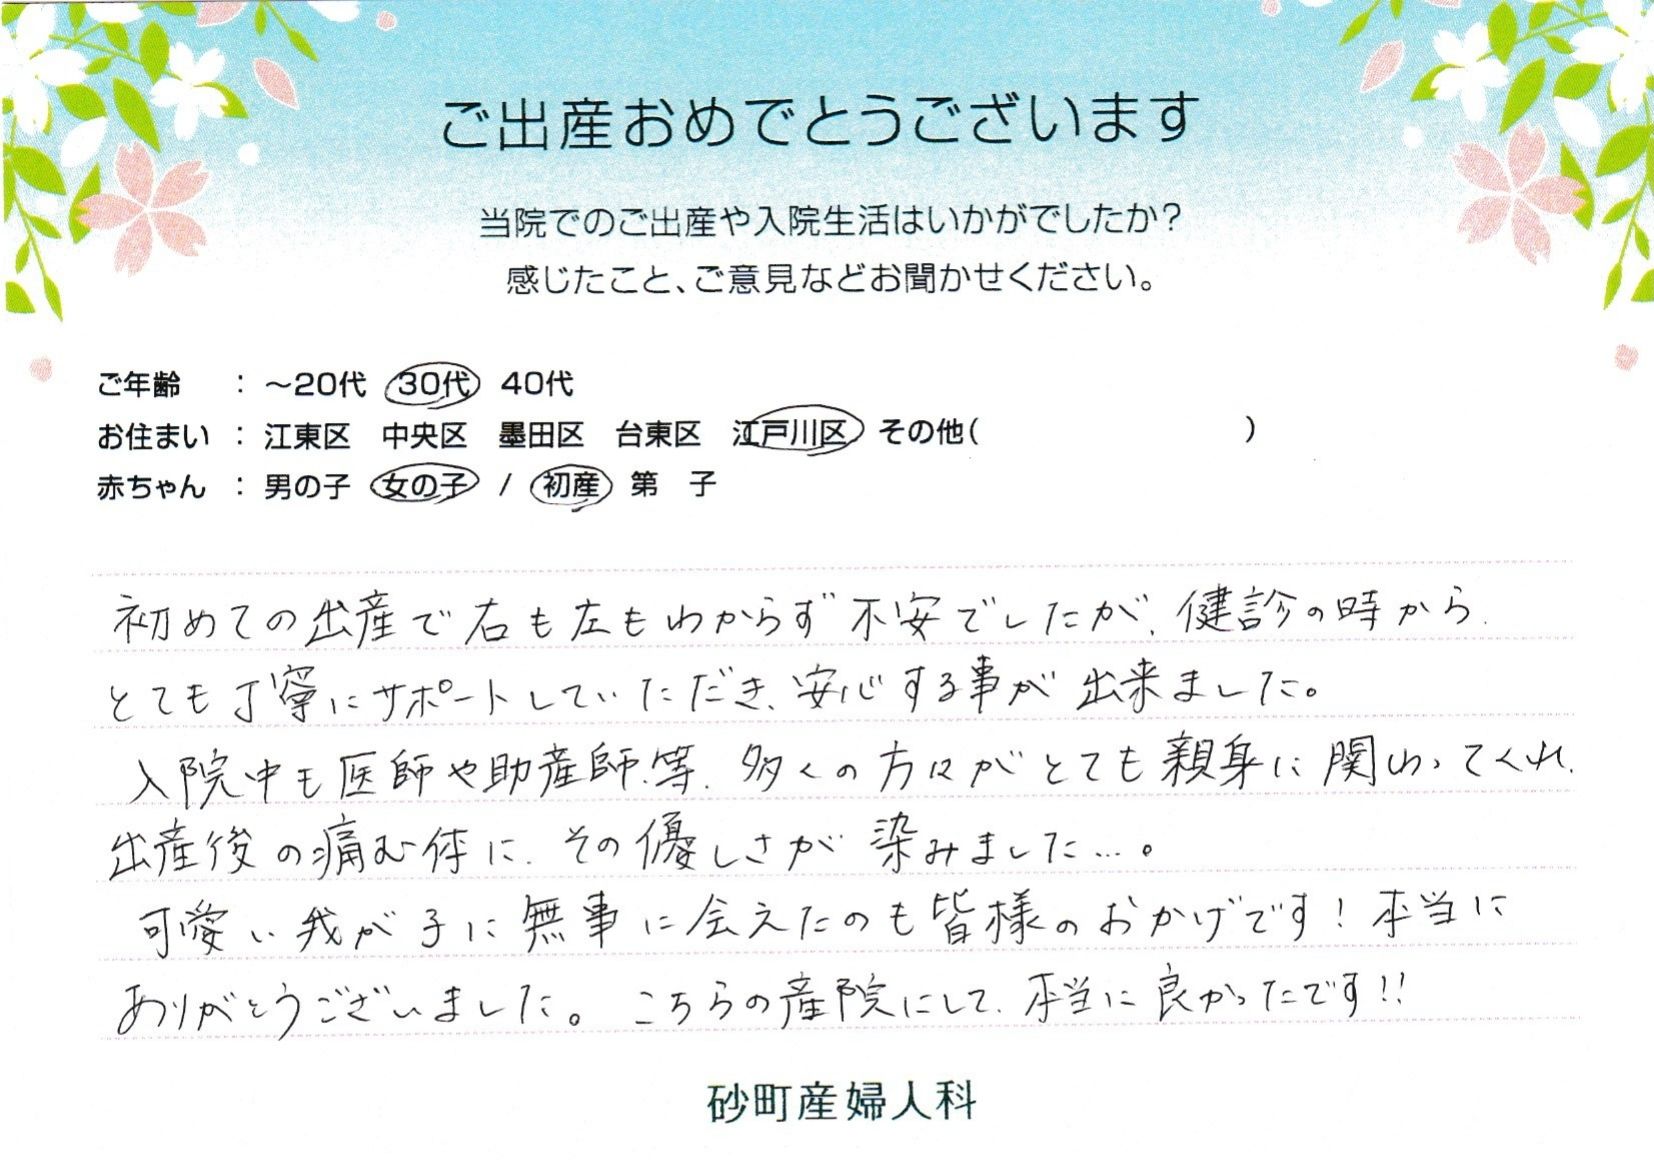 ご出産おめでとうございます
当院でのご出産や入院生活はいかがでしたか?
感じたこと、ご意見などお聞かせください。
ご年齢 : ～20代 30代 40代
お住まい : 江東区 中央区 墨田区 台東区 江戸川区 その他( )
赤ちゃん : 男の子 女の子 / 初産 第 子
初めての出産で右も左もわからず不安でしたが、健診の時から、
とても丁寧にサポートしていただき、安心する事が出来ました。
入院中も医師や助産師等、多くの方々がとても親身に関わってくれ、
出産後の痛む体に、その優しさが染みました…。
可愛い我が子に無事に会えたのも皆様のおかげです!本当に
ありがとうございました。こちらの産院にして、本当に良かったです!!
砂町産婦人科